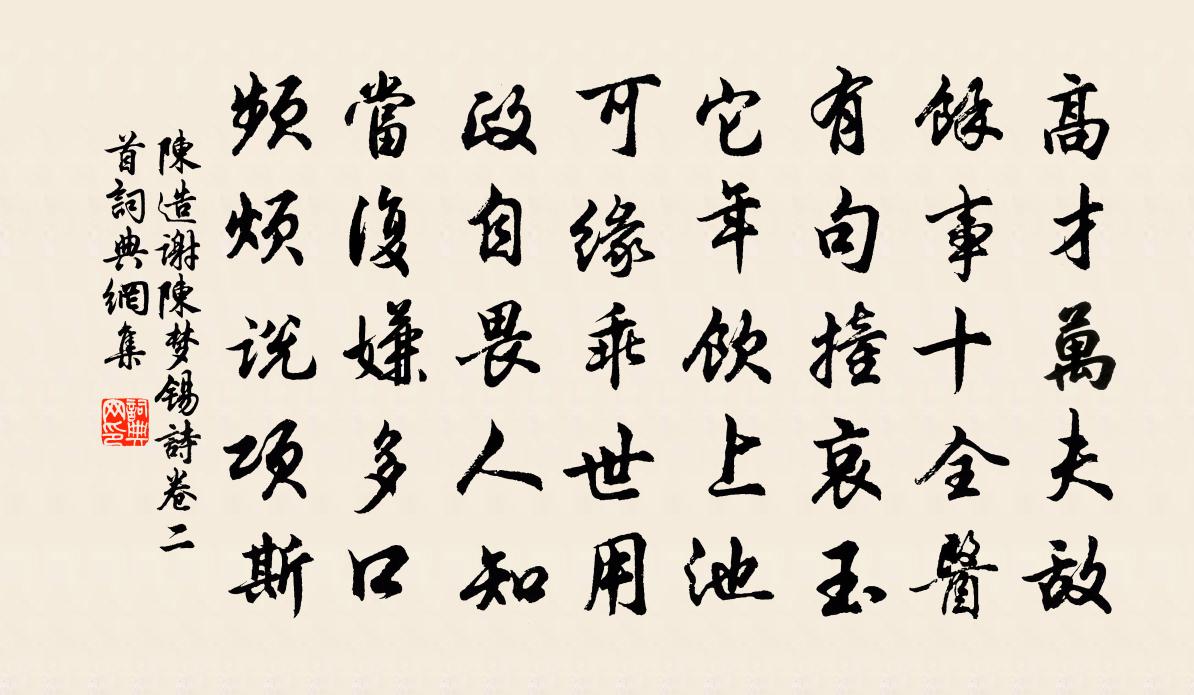 高才萬夫敵
餘事十全醫
有句撞哀玉
它年飲上池
可緣乖世用
政自畏人知
當復嫌多口
頻煩説項斯
陳造謝陳梦錫詩卷二
首詞典網集
詞典网印